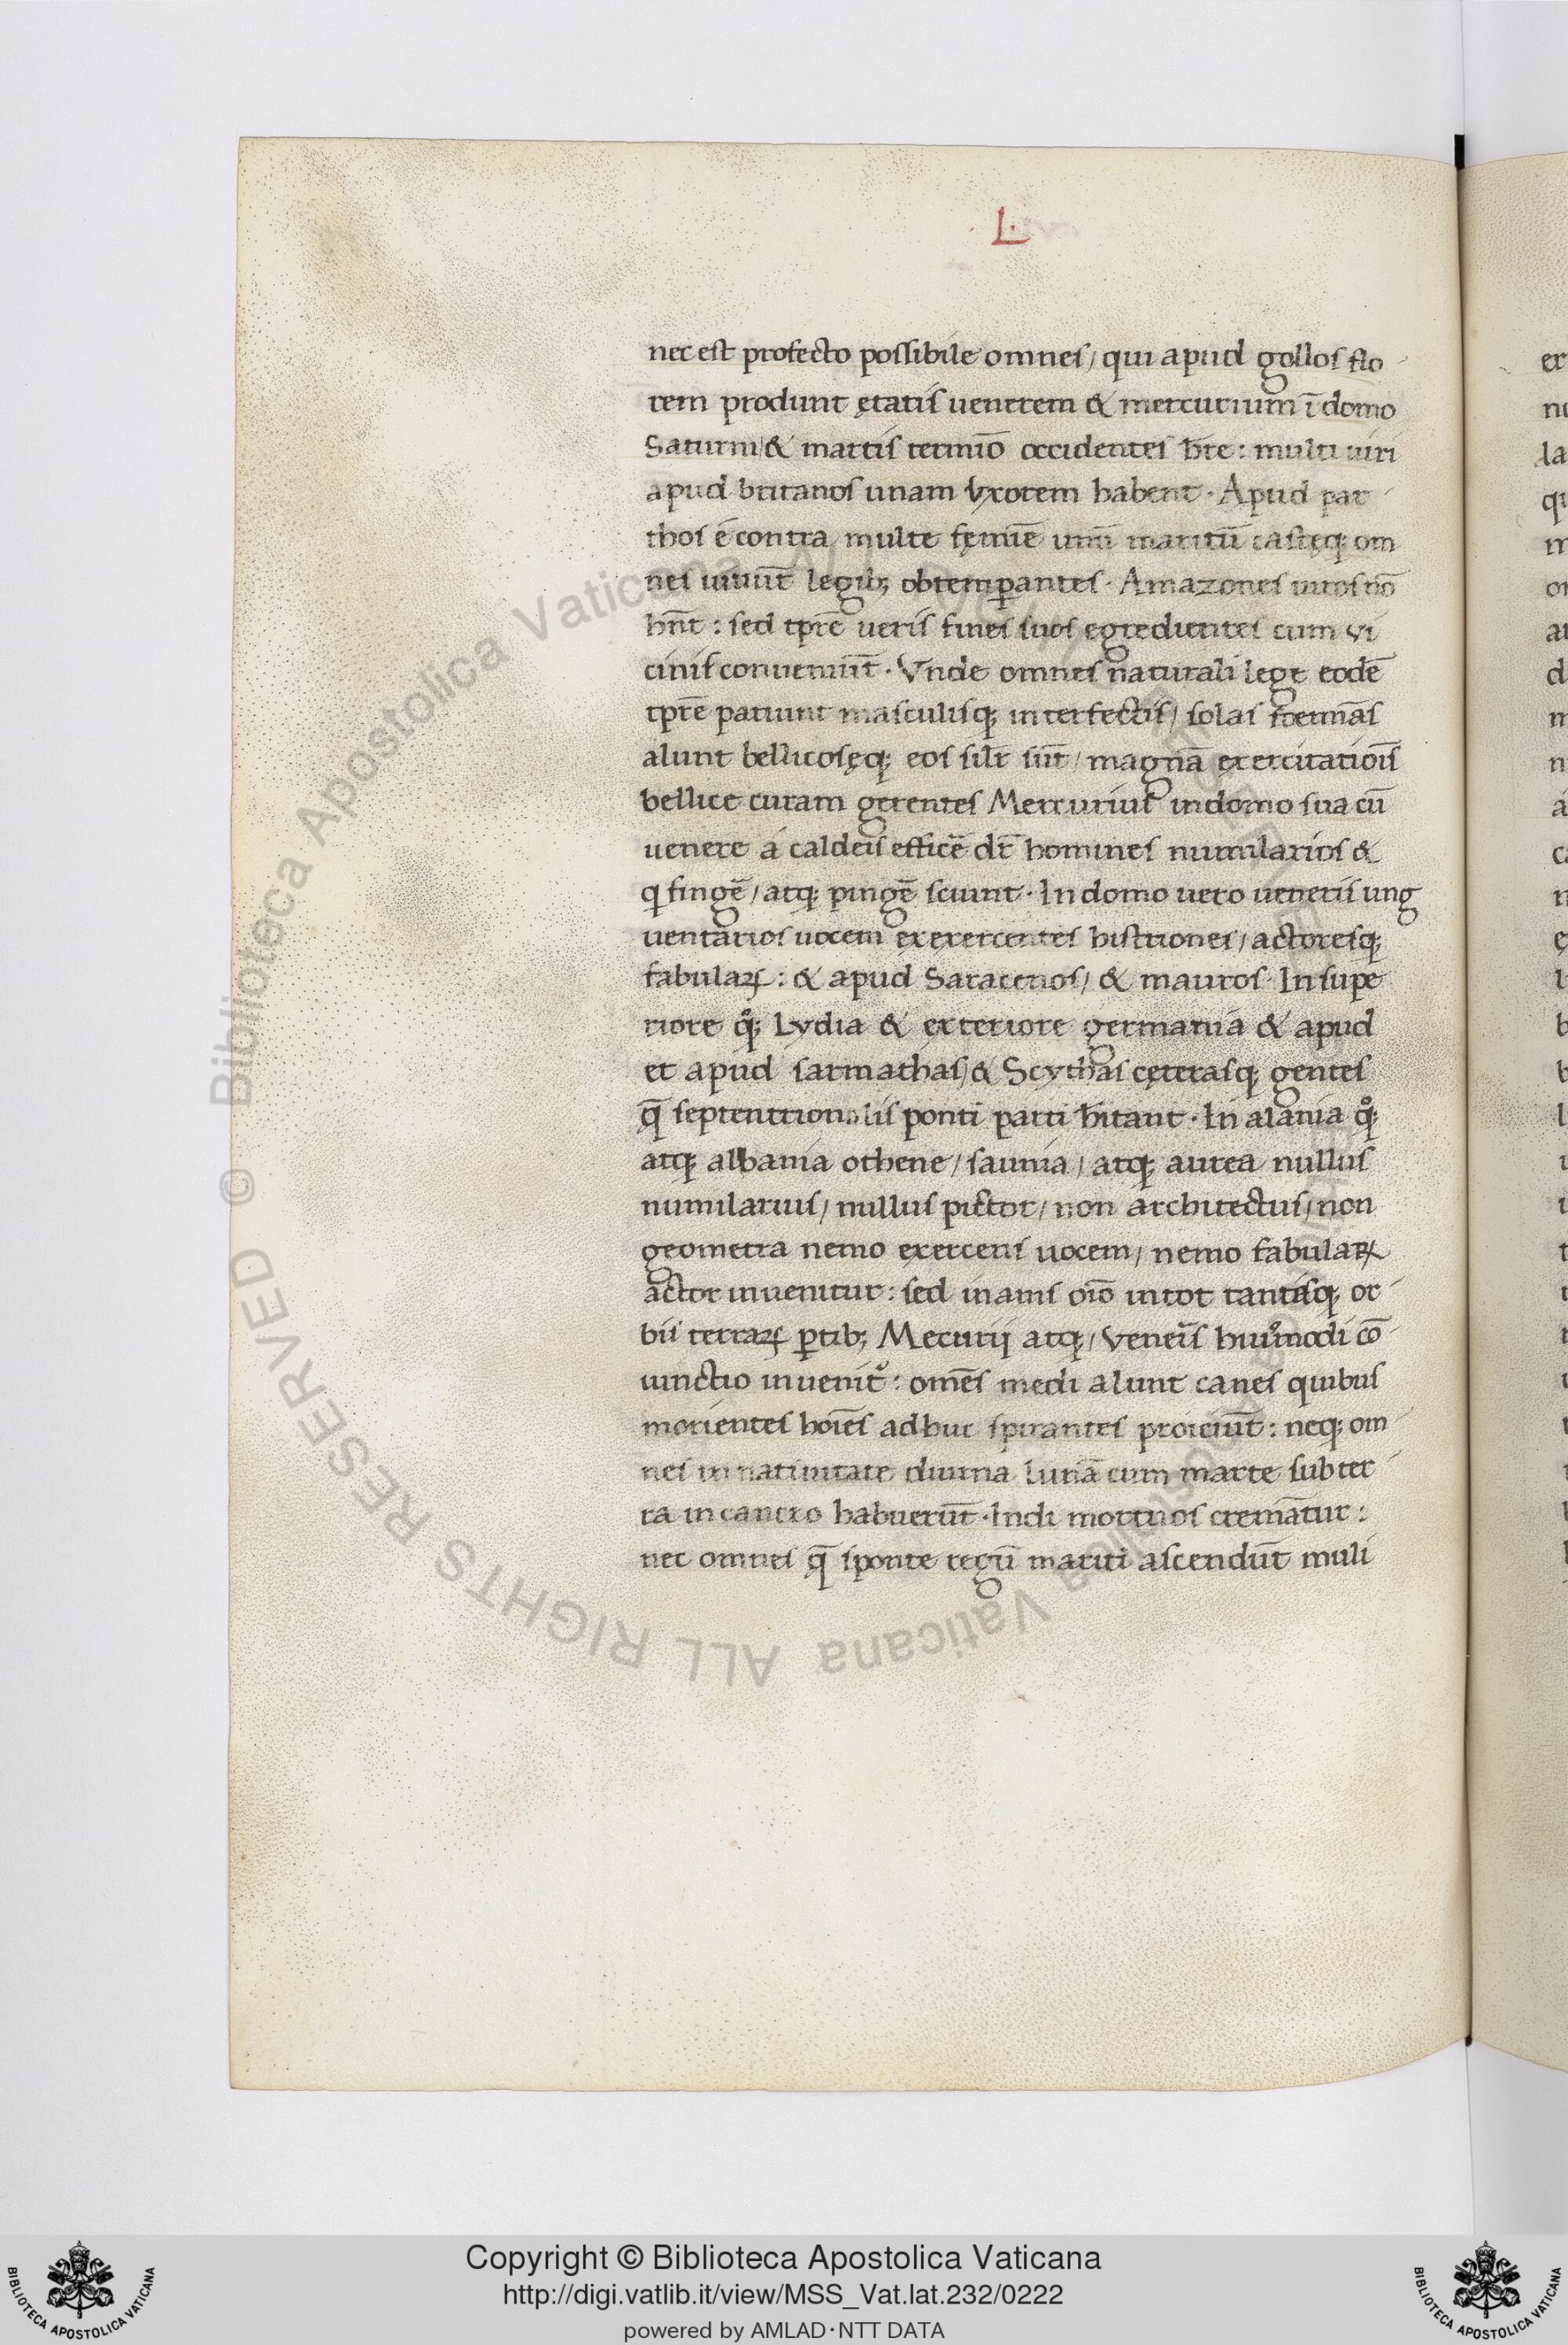 L.
nec est profecto possibile omnes/ qui apud gollos flo
rem produnt ętatis uenerem & mercurium ī domo
Saturni/& martis termīo occidentes h̄re: multi uiri
apud britanos unam vxorem habent. Apud par
thos é contra multe fęmīe unū maritū castęq; om
nes uiuūt legib; obtemp̄antes. Amazones uiros nō
hn̄t: sed tp̄re ueris fines suos egredientes cum vi
cinis conueniūt. Vnde omnes naturali lege eodē
tp̄re pariunt masculisq; interfectis/ solas foemīas
alunt bellicosęq; eos silr̄ sūt/ magnā exercitatiōis
bellice curam gerentes Mercurius in domo sua cū
uenere á caldeis efficē dr̄ homines numilarios &
q fingē/ atq; pingē sciunt. In domo uero ueneris ung
uentarios uocem exexercentes histriones/ actoresq;
fabulaꝝ: & apud Saracenos/ & mauros. In supe
riore qͦ; Lydia & exteriore germania & apud
et apud sarmathas/& Scythas cęterasq; gentes
q̄ septentrionalis ponti parti h̄itant. In alania qͦ;
atq; albania othene/ saunia/ atq; aurea nullus
numilarius/ nullus pictor/ non architectus/ non
geometra nemo exercens uocem/ nemo fabulaꝝ
actor inuenitur: sed inanis oīo in tot tantisq; or
bis terraꝝ ꝑtib; Mecurij atq;/ veneīs huiͦmodi cō
iunctio inuenit᷑: omēs medi alunt canes quibus
morientes hoīes adhuc spirantes proiciūt: neq; om
nes in natiuitate diurna lunā cum marte sub ter
ra in cancro habuerūt. Indi mortuos cremātur:
nec omnes q̄ sponte regū mariti ascendūt muli
© Biblioteca Apostolica Vaticana ALL RIGHTS RESERVED
Copyright © Biblioteca Apostolica Vaticana
http://digi.vatlib.it/view/MSS_Vat.lat.232/0222
powered by AMLAD·NTT DATA
BIBLIOTECA APOSTOLICA VATICANA
BIBLIOTECA APOSTOLICA VATICANA